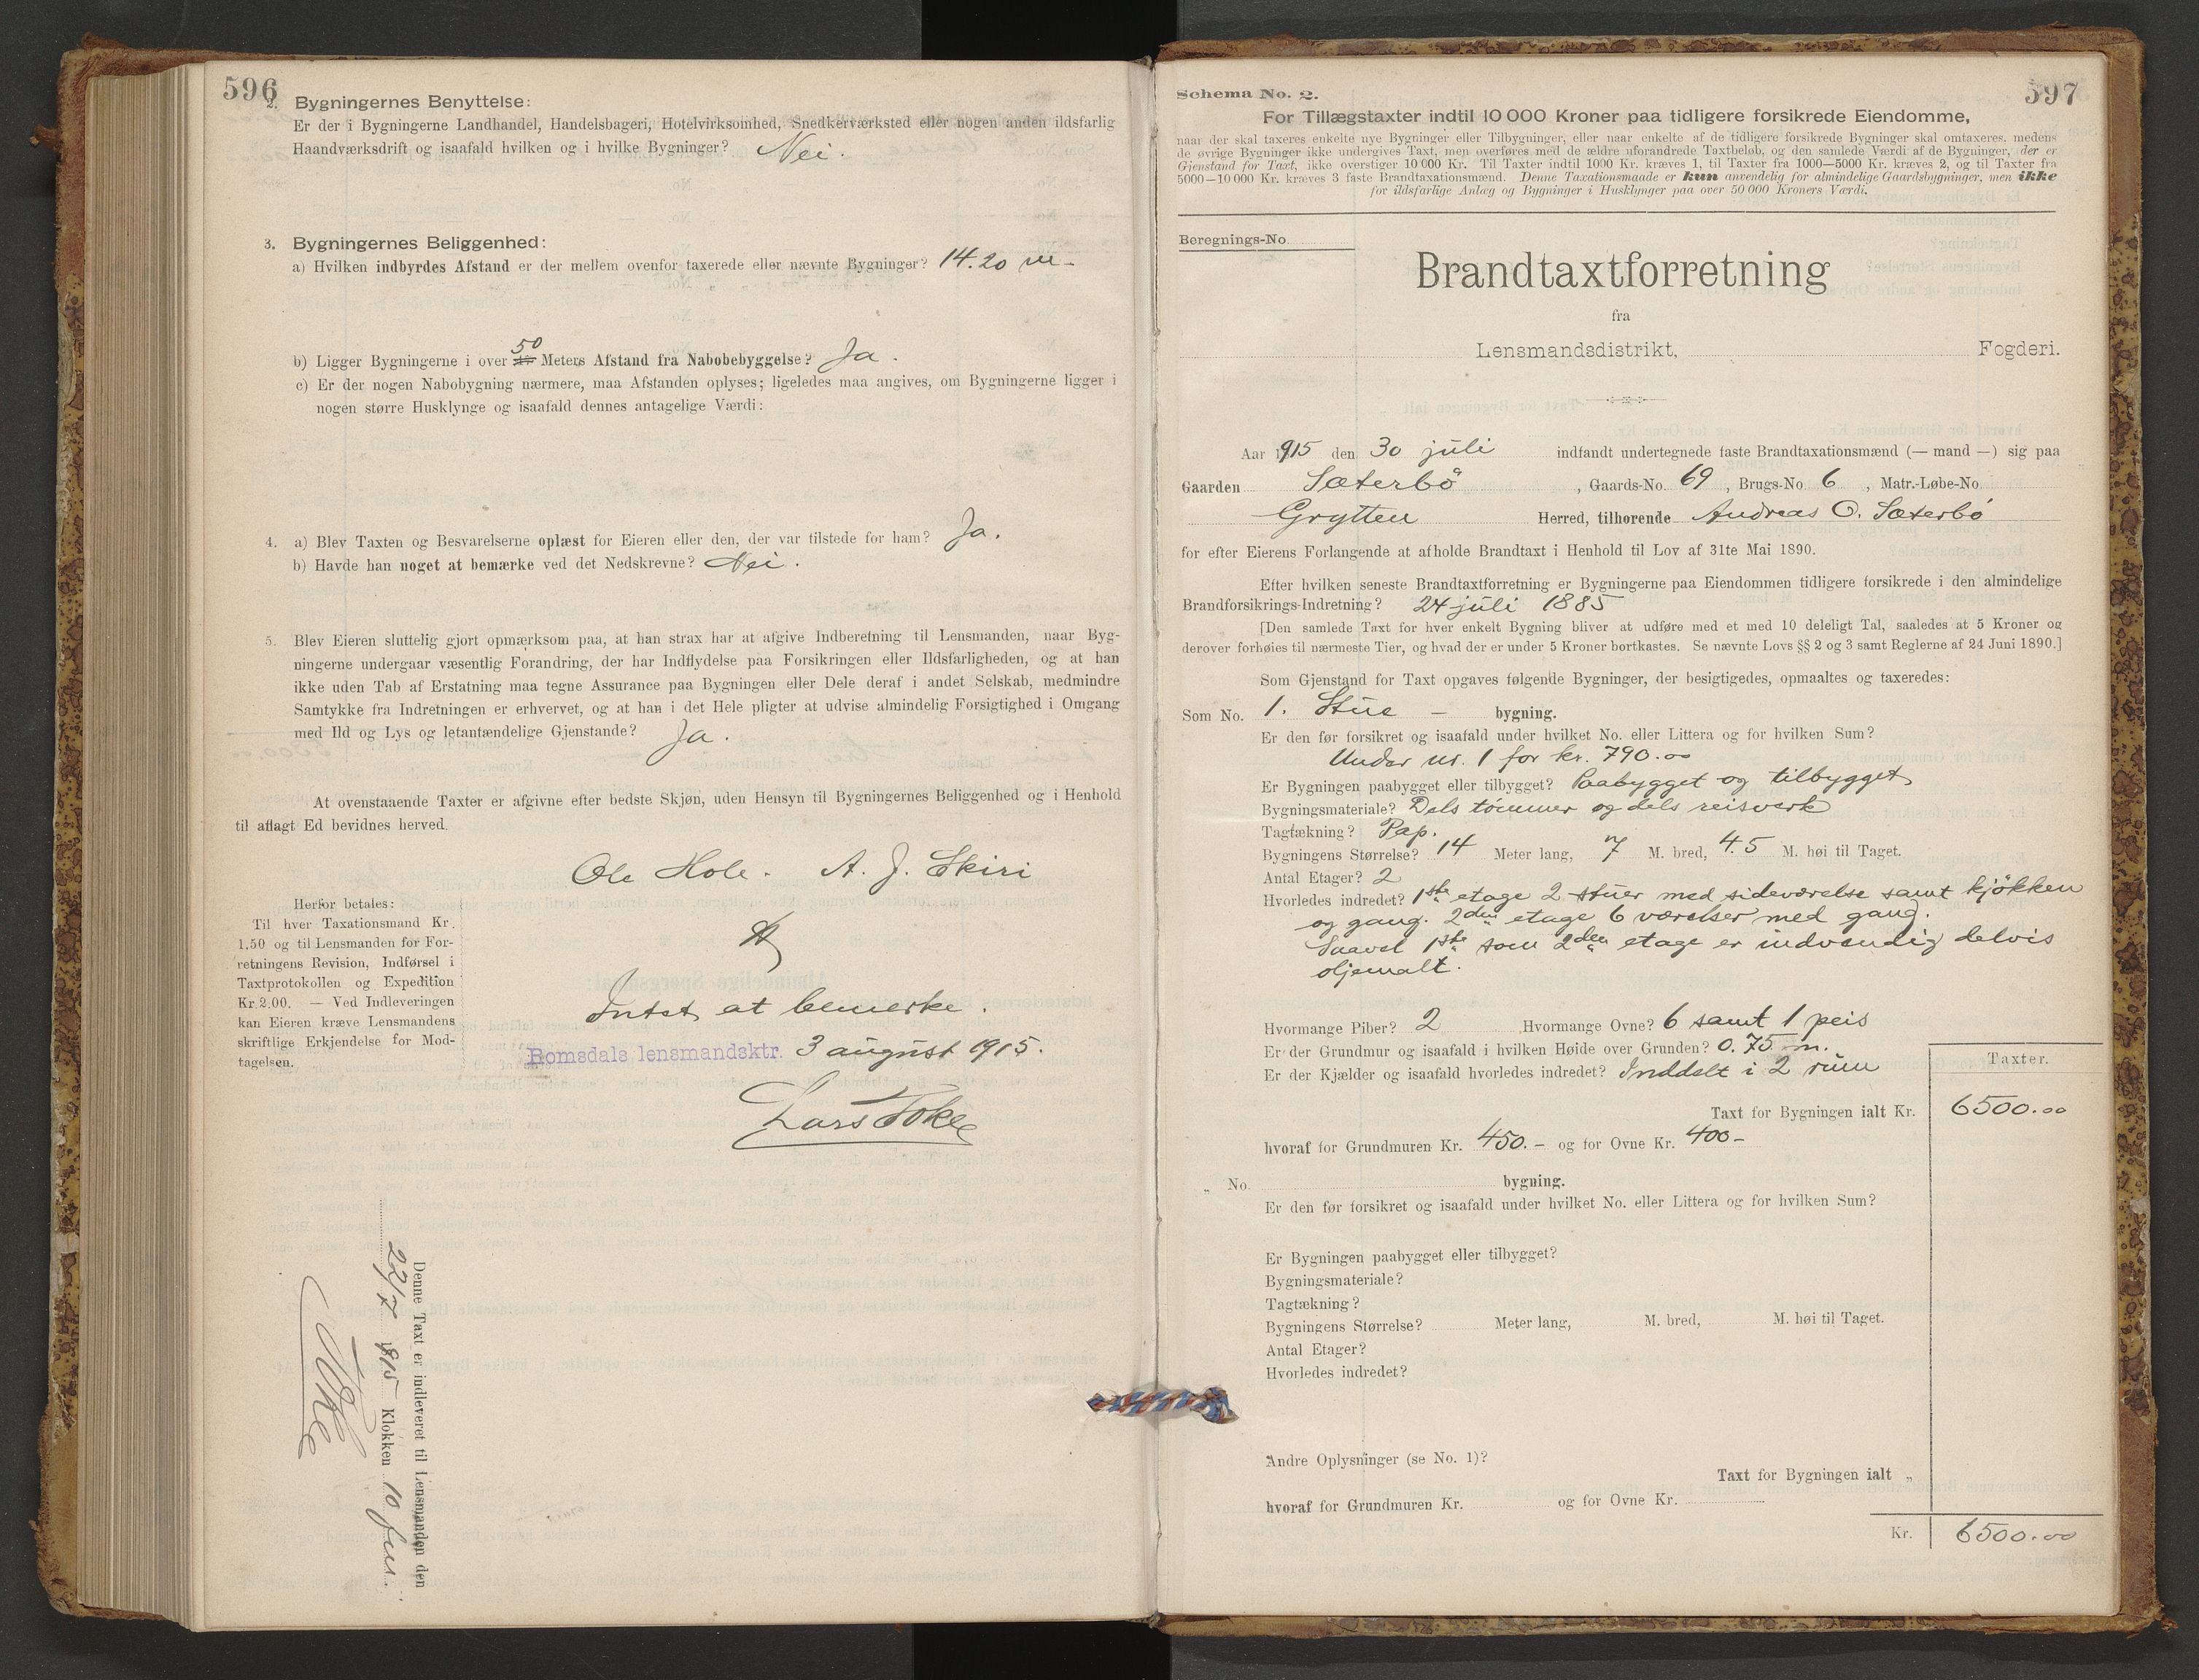 596
2. Bygningernes Benyttelse:
Er der i Bygningerne Landhandel, Handelsbageri, Hotelvirksomhed, Snedkerværksted eller nogen anden ildsfarlig
Haandværksdrift og isaafald hvilken og i hvilke Bygninger? Nei.
3. Bygningernes Beliggenhed:
a) Hvilken indbyrdes Afstand er der mellem ovenfor taxerede eller nævnte Bygninger? 14.20 m-
50
b) Ligger Bygningerne i over Meters Afstand fra Nabobebyggelse? Ja.
c) Er der nogen Nabobygning nærmere, maa Afstanden oplyses; ligeledes maa angives, om Bygningerne ligger i
nogen større Husklynge og isaafald dennes antagelige Værdi:
4. a) Blev Taxten og Besvarelserne oplæst for Eieren eller den, der var tilstede for ham? Ja.
b) Havde han noget at bemærke ved det Nedskrevne? Nei.
5. Blev Eieren sluttelig gjort opmærksom paa, at han strax har at afgive Indberetning til Lensmanden, naar Byg-
ningerne undergaar væsentlig Forandring, der har Indflydelse paa Forsikringen eller Ildsfarligheden, og at han
ikke uden Tab af Erstatning maa tegne Assurance paa Bygningen eller Dele deraf i andet Selskab, medmindre
Samtykke fra Indretningen er erhvervet, og at han i det Hele pligter at udvise almindelig Forsigtighed i Omgang
med Ild og Lys og letantændelige Gjenstande? Ja.
At ovenstaaende Taxter er afgivne efter bedste Skjøn, uden Hensyn til Bygningernes Beliggenhed og i Henhold
til aflagt Ed bevidnes herved.
Ole Hole. A. J. Skiri
Herfor betales:
Til hver Taxationsmand Kr.
1.50 og til Lensmanden for For-
retningens Revision, Indførsel i
Taxtprotokollen og Expedition
Kr. 2.00. — Ved Indleveringen
kan Eieren kræve Lensmandens
skriftlige Erkjendelse for Mod-
tagelsen.
Intet at bemerke.
Romsdals lensmandsktr. 3 august 1915.
Lars Soke
Denne Taxt er indleveret til Lensmanden den
22/7 1915 Klokken 10 fm.
Soke
597
Schema No. 2.
For Tillægstaxter indtil 10 000 Kroner paa tidligere forsikrede Eiendomme,
naar der skal taxeres enkelte nye Bygninger eller Tilbygninger, eller naar enkelte af de tidligere forsikrede Bygninger skal omtaxeres, medens
de øvrige Bygninger ikke undergives Taxt, men overføres med de ældre uforandrede Taxtbeløb, og den samlede Værdi af de Bygninger, der er
Gjenstand for Taxt, ikke overstiger 10 000 Kr. Til Taxter indtil 1000 Kr. kræves 1, til Taxter fra 1000—5000 Kr. kræves 2, og til Taxter fra
5000—10 000 Kr. kræves 3 faste Brandtaxationsmænd. Denne Taxationsmaade er kun anvendelig for almindelige Gaardsbygninger, men ikke
for ildsfarlige Anlæg og Bygninger i Husklynger paa over 50 000 Kroners Værdi.
Beregnings-No.
Brandtaxtforretning
fra
Lensmandsdistrikt, Fogderi.
Aar 1915 den 30 juli indfandt undertegnede faste Brandtaxationsmænd (— mand —) sig paa
Gaarden Sæterbö, Gaards-No. 69, Brugs-No 6, Matr.-Løbe-No.
Grytten Herred, tilhørende Andreas O. Sæterbö
for efter Eierens Forlangende at afholde Brandtaxt i Henhold til Lov af 31te Mai 1890.
Efter hvilken seneste Brandtaxtforretning er Bygningerne paa Eiendommen tidligere forsikrede i den almindelige
Brandforsikrings-Indretning? 24 juli 1885
[Den samlede Taxt for hver enkelt Bygning bliver at udføre med et med 10 deleligt Tal, saaledes at 5 Kroner og
derover forhøies til nærmeste Tier, og hvad der er under 5 Kroner bortkastes. Se nævnte Lovs §§ 2 og 3 samt Reglerne af 24 Juni 1890.]
Som Gjenstand for Taxt opgaves følgende Bygninger, der besigtigedes, opmaaltes og taxeredes:
Som No. 1. Stue – bygning.
Er den før forsikret og isaafald under hvilket No. eller Littera og for hvilken Sum?
Under nr. 1 for kr. 790.00
Er Bygningen paabygget eller tilbygget? Paabygget og tilbygget
Bygningsmateriale? Dels tömmer og dels reisverk
Tagtækning? Pap.
Bygningens Størrelse? 14 Meter lang, 7 M. bred, 4.5 M. høi til Taget.
Antal Etager? 2
Hvorledes indredet? 1ste etage 2 stuer med sideværelse samt kjökken
og gang. 2den etage 6 værelser med gang.
Saavel 1ste som 2den etage er indvendig delvis
oljemalt.
Hvormange Piber? 2 Hvormange Ovne? 6 samt 1 peis
Er der Grundmur og isaafald i hvilken Høide over Grunden? 0.75 m.
Er der Kjælder og isaafald hvorledes indredet? Inddelt i 2 rum
Taxter.
Taxt for Bygningen ialt Kr. 6500.00
hvoraf for Grundmuren Kr. 450.– og for Ovne Kr. 400–
„ No. bygning.
Er den før forsikret og isaafald under hvilket No. eller Littera og for hvilken Sum?
Er Bygningen paabygget eller tilbygget?
Bygningsmateriale?
Tagtækning?
Bygningens Størrelse? Meter lang, M. bred, M. høi til Taget.
Antal Etager?
Hvorledes indredet?
Andre Oplysninger (se No. 1)?
Taxt for Bygningen ialt „
hvoraf for Grundmuren Kr. og for Ovne Kr.
Kr. 6500.00